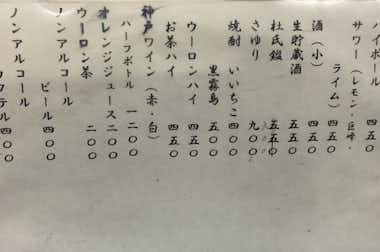 ハイボール 四五〇
サワー(レモン・巨峰・
ライム) 四五〇
酒(小) 四五〇
生貯蔵酒 五五〇
杜氏鑑 五五〇
さゆり 九〇〇
焼酎 いいちこ 四〇〇
黒霧島 五〇〇
ウーロンハイ 四五〇
お茶ハイ 四五〇
神戸ワイン(赤・白)
ハーフボトル 一二〇〇
オレンジジュース 二〇〇
ウーロン茶 二〇〇
ノンアルコール
ビール 四〇〇
ノンアルコール
カクテル 四〇〇